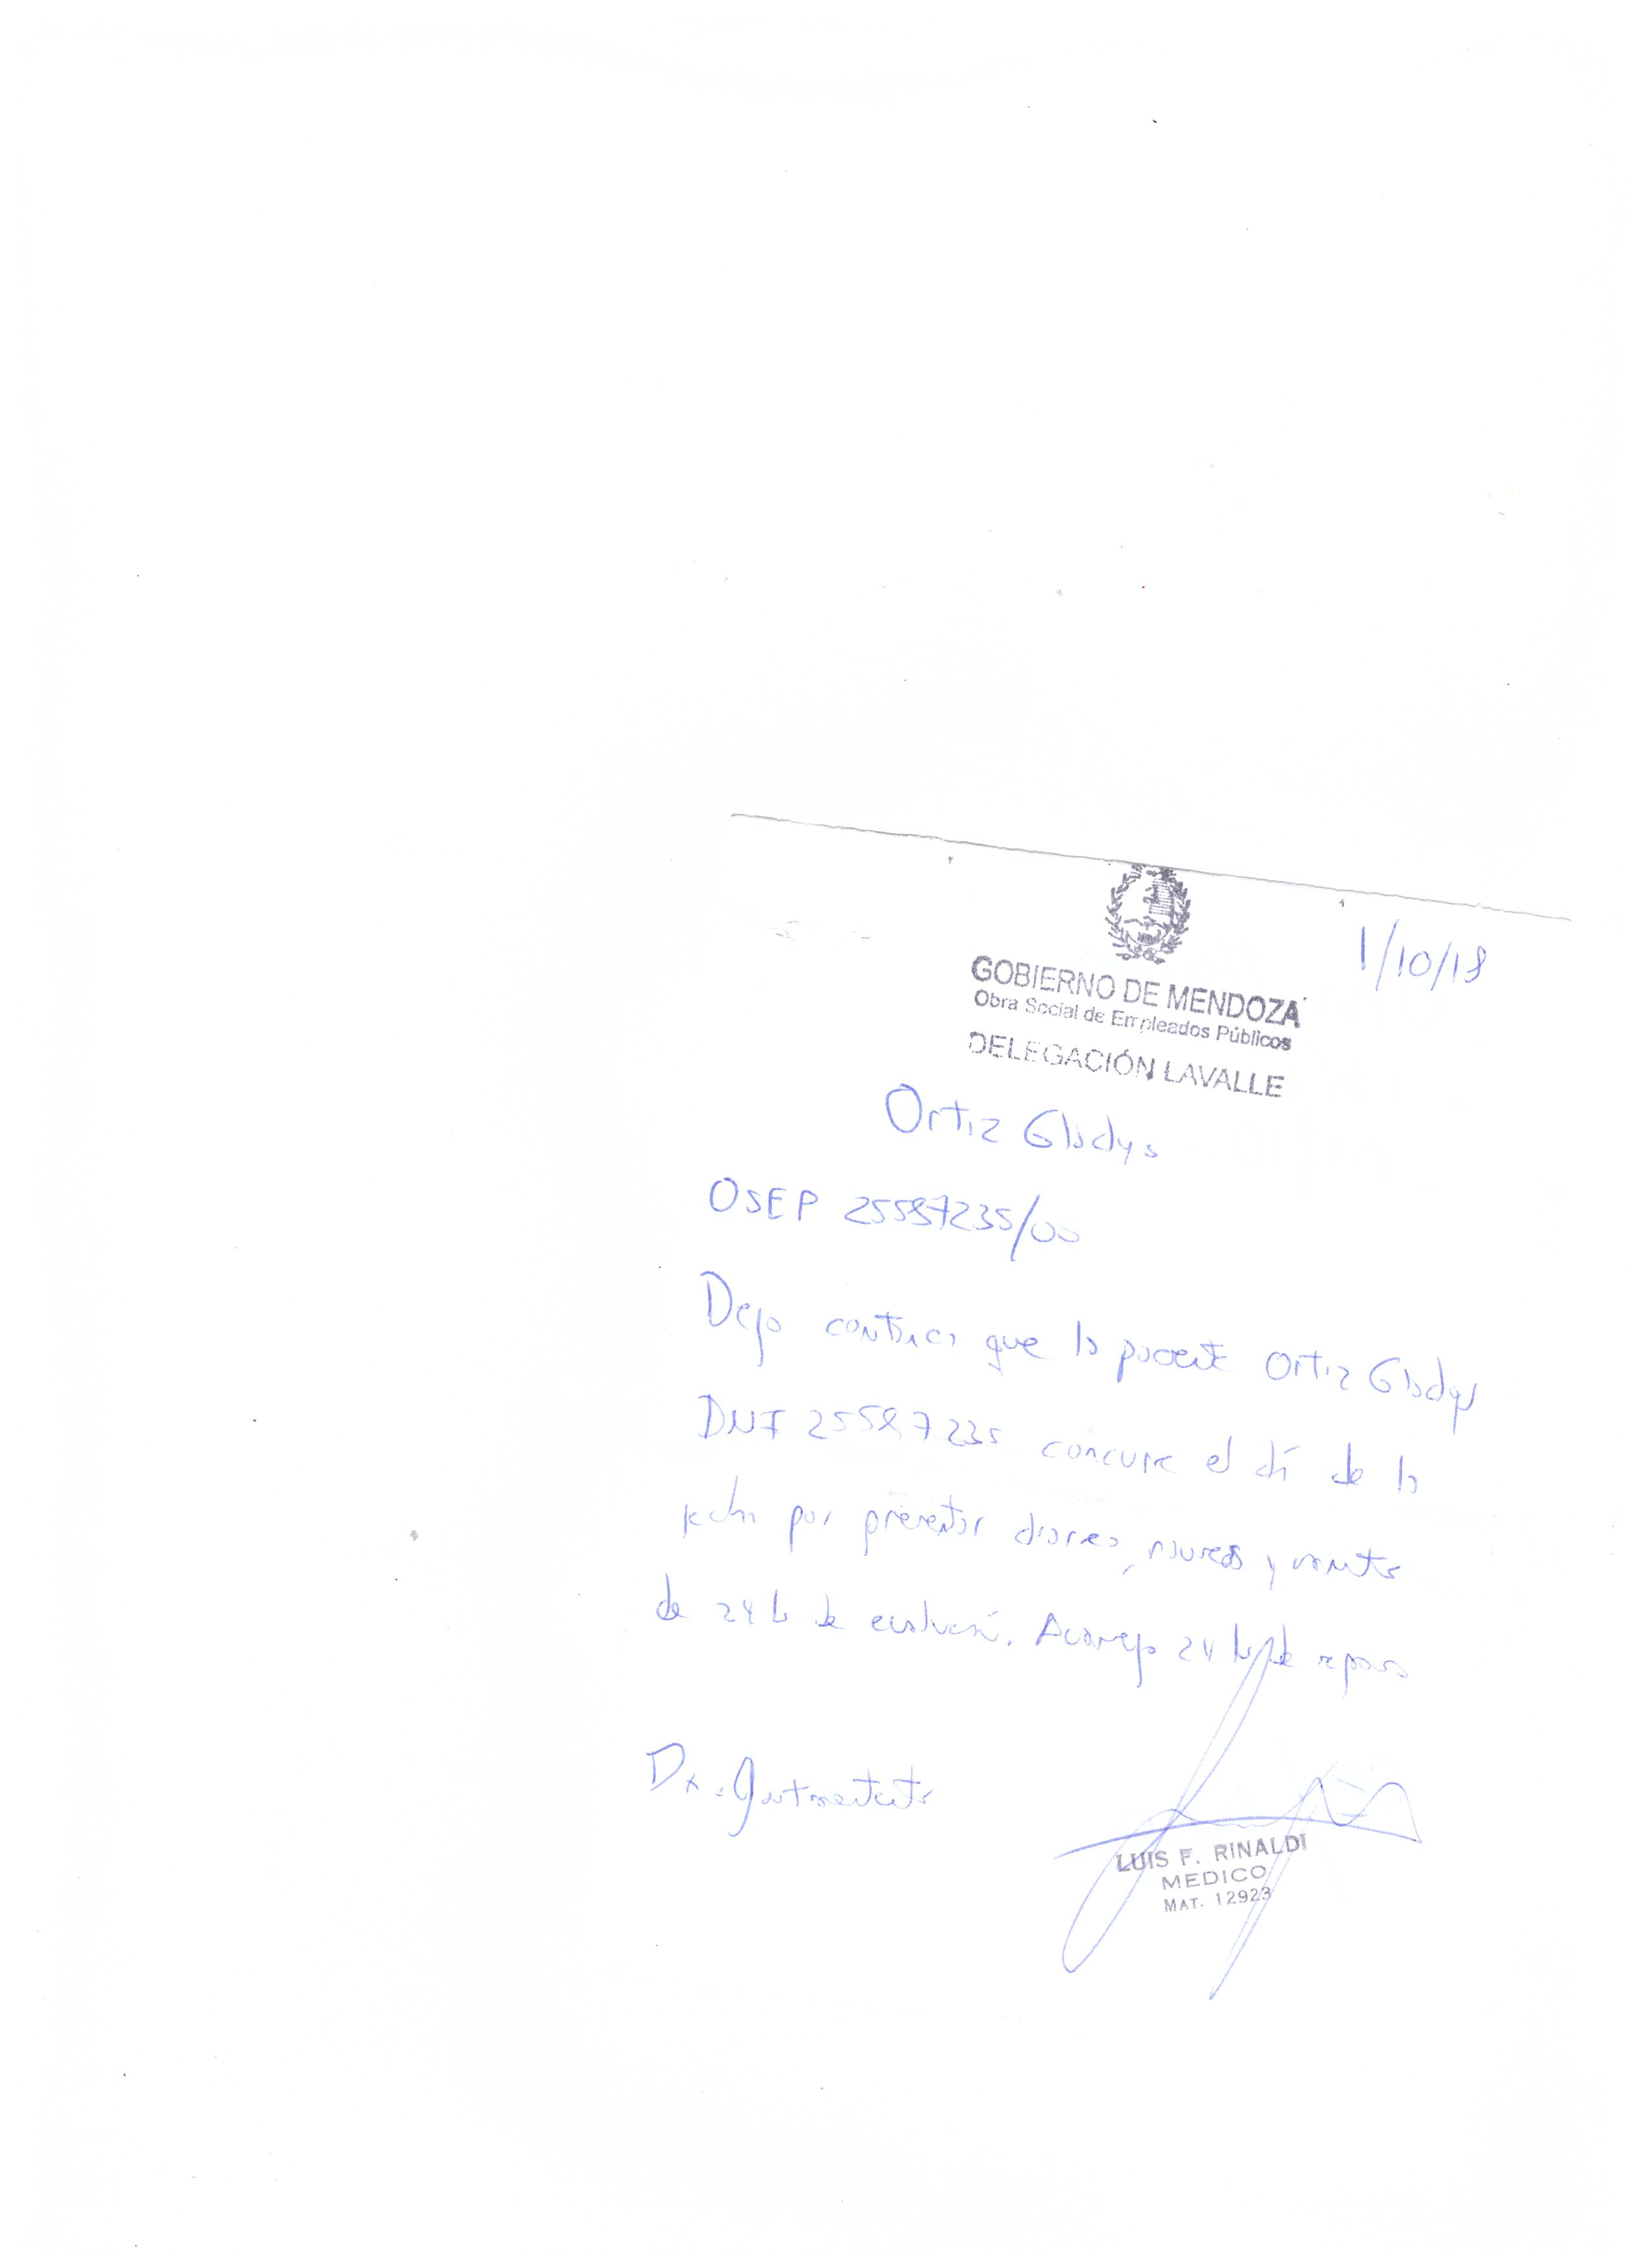 1/10/18
GOBIERNO DE MENDOZA
Obra Social de Empleados Públicos
DELEGACIÓN LAVALLE
Ortiz Gladys
OSEP 25587235/00
Dejo constancia que la paciente Ortiz Gladys
DNI 25587235 concurre el día de la
fecha por presentar diarrea, nauseas y vomitos
de 24 hs de evolución. Aconsejo 24 hs de reposo
Dx: Gastroenteritis
LUIS F. RINALDI
MEDICO
MAT. 12923